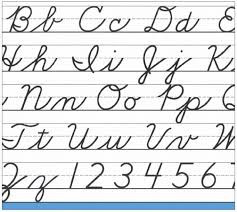 Bb Cc Dd E
Hh Ii Jj K
Nn Oo Pp Q
Tt Uu Vv W
Zz 1 2 3 4 5 6 7